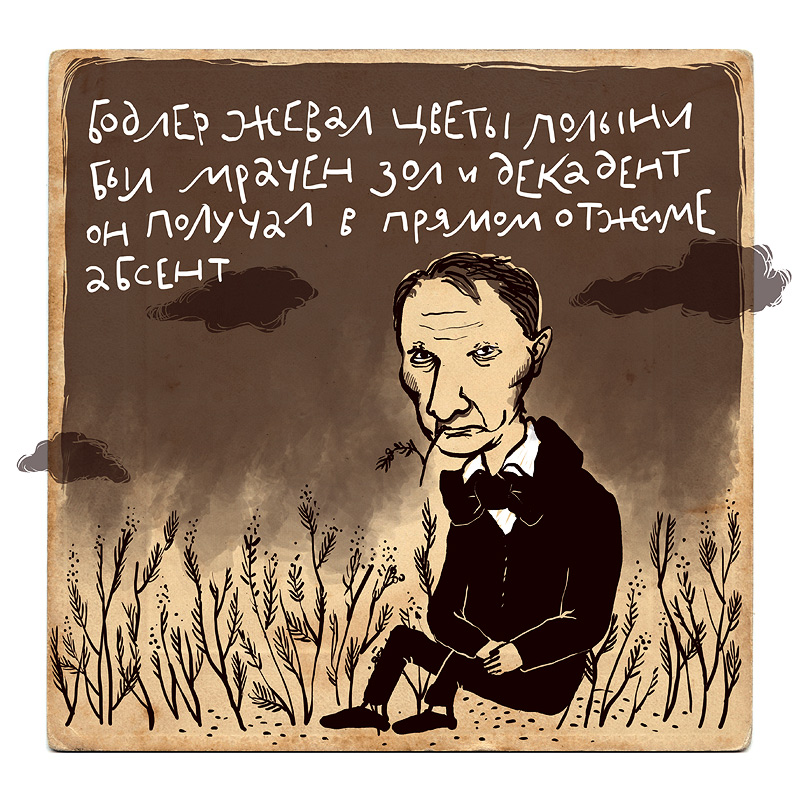 бодлер жевал цветы полыни
был мрачен зол и декадент
он получал в прямом отжиме
абсент